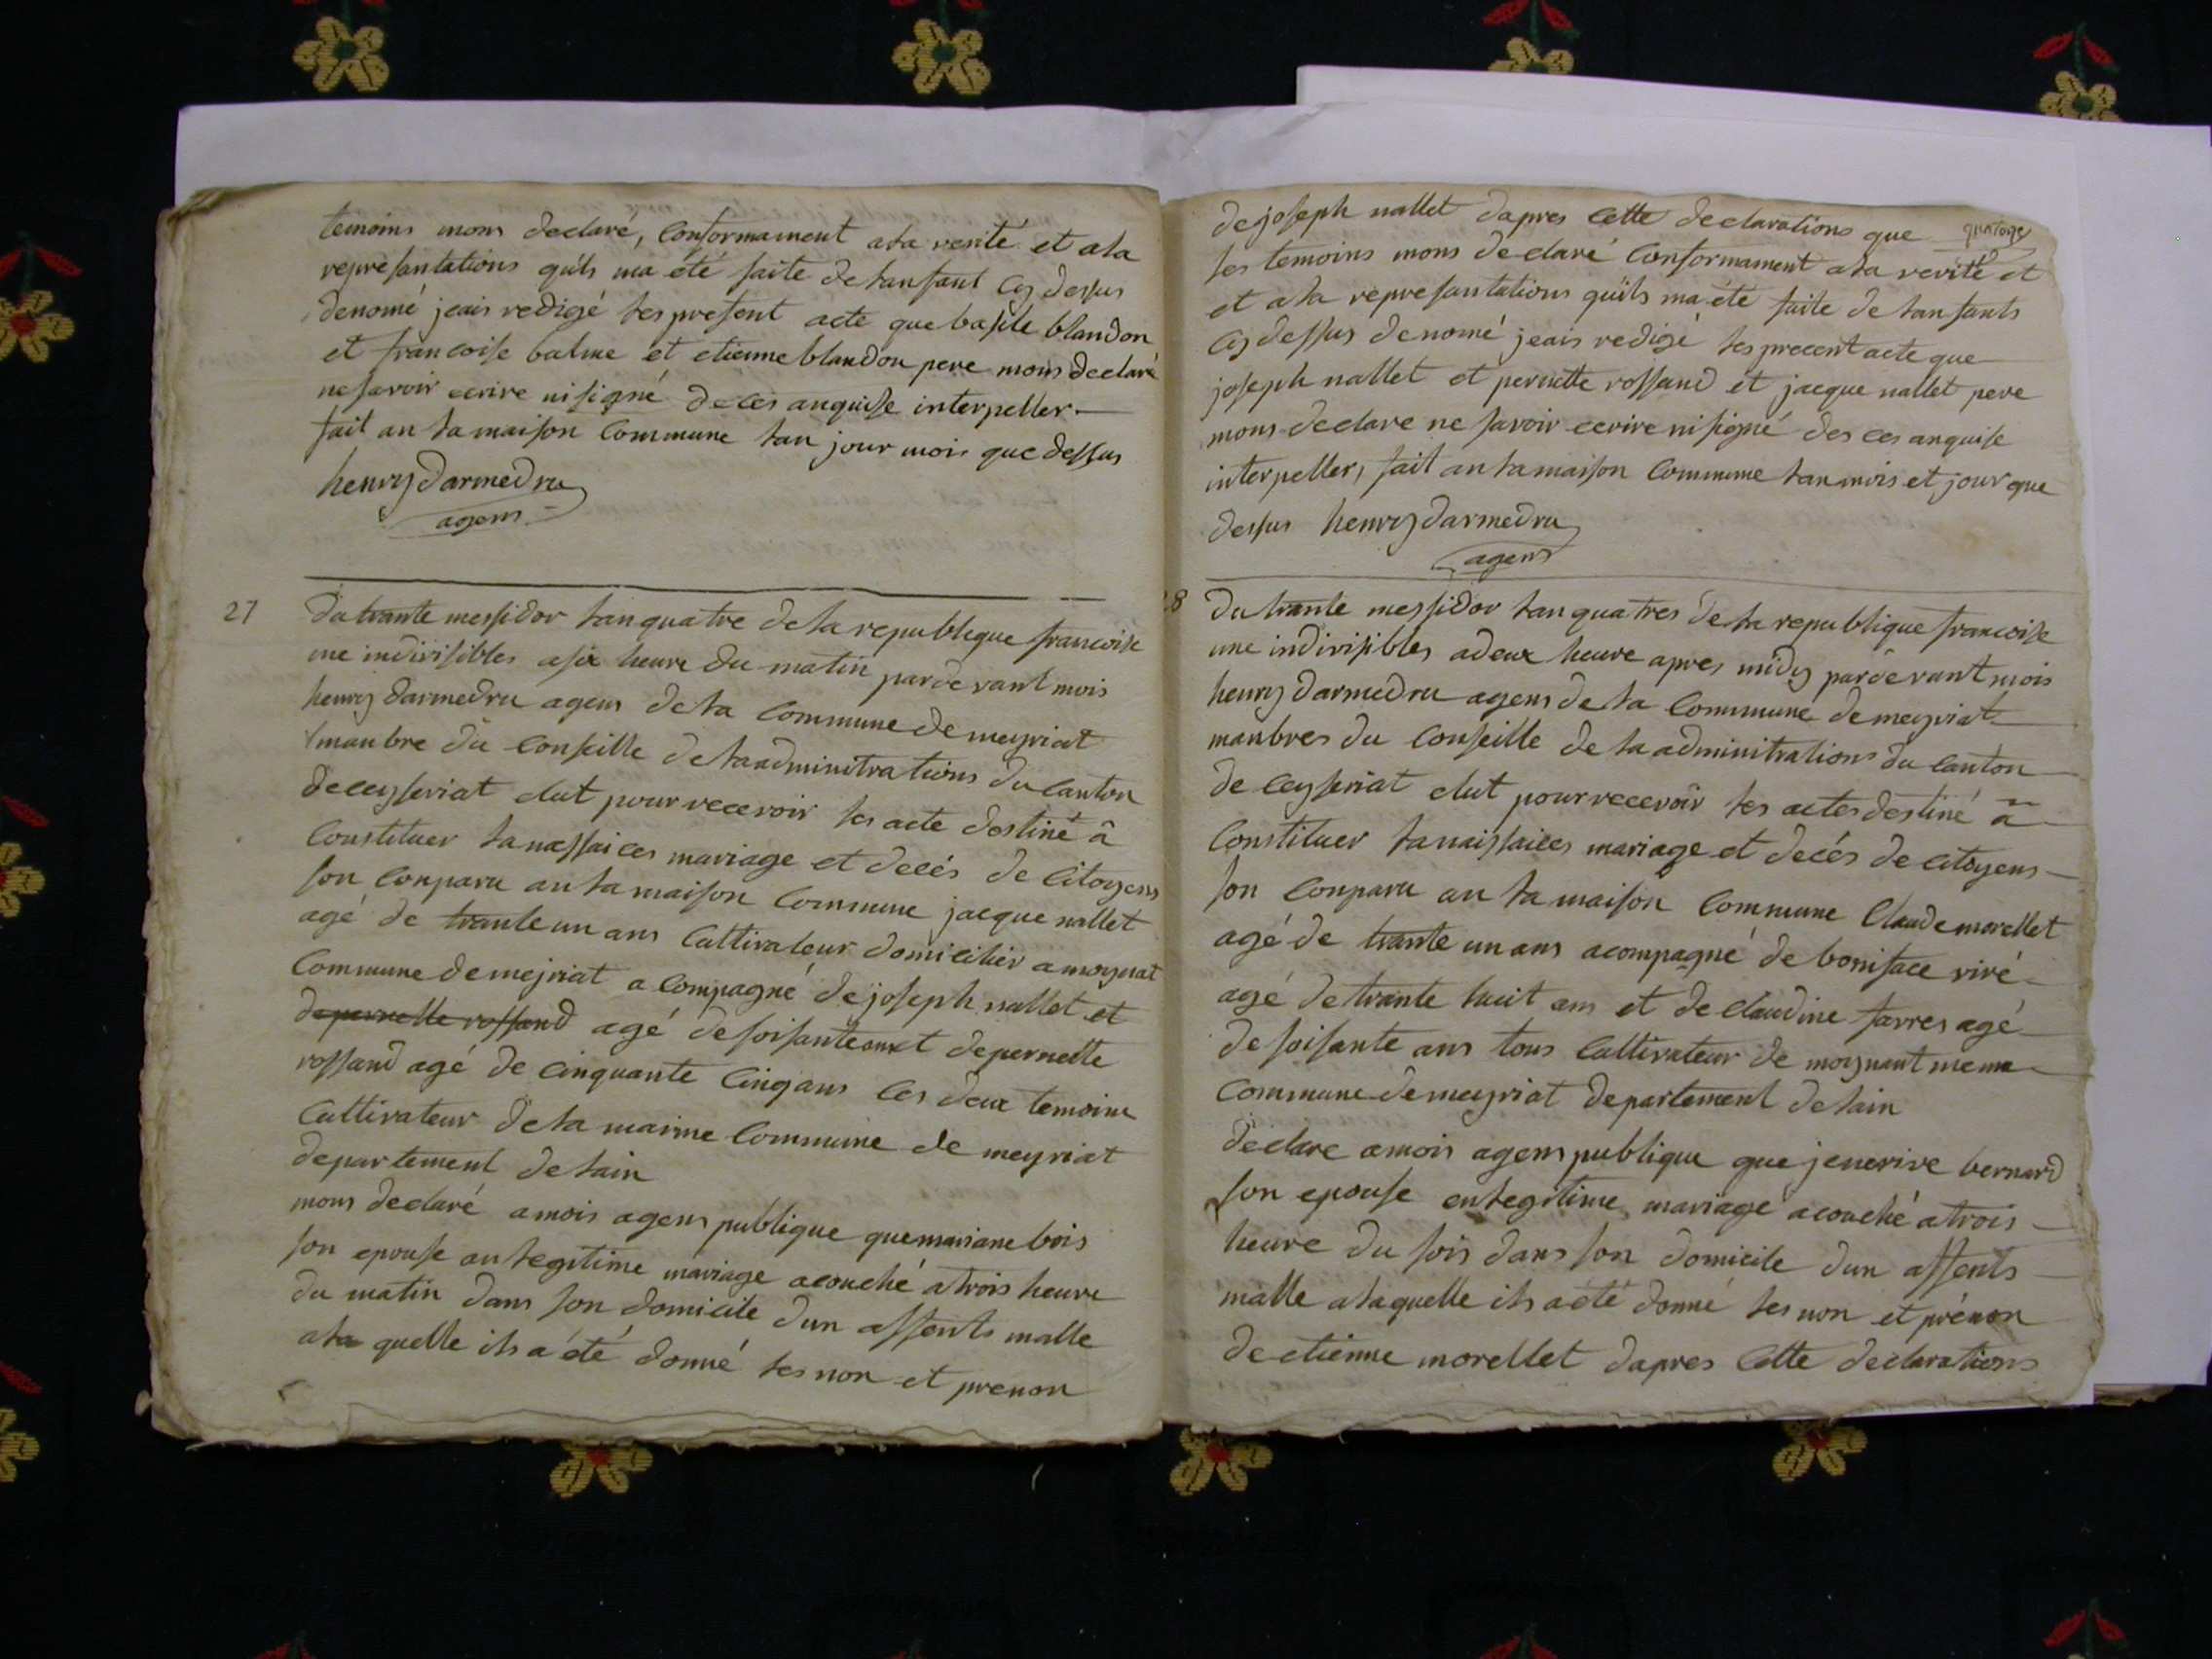 temoins mons declaré, conformament ala verité et ala
represantations quils ma été faite de lanfant cy dessus
denomé jeais redigé les present acte que basile blandon
et francoise balme et etienne blandon pere mons declaré
ne savoir ecrire ni signé de ces anquise interpeller —
fait an la maison commune lan jour mois que dessus
henry darmedru
agens
27
du trante messidor lan quatre de la republique francoise
une indivisibles a six heure du matin pardevant mois
henry darmedru agens de la commune de meyriat
manbre du conseille de la administrations du canton
de ceyseriat elut pour recevoir les acte destiné â
constituer la naissaices mariage et decés de citoyens
son conparu an la maison commune jacque nallet
agé de trante un ans cultivateur domicilier a moynat
commune de mejriat a compagné de joseph nallet et
de pernelle rossand agé de soisante et depernette
rossand agé de cinquante cinq ans les deux temoins
cultivateur de la maime commune de meyriat
departement de lain
mons declaré amois agens publique que mariane bois
son epouse an legitime mariage acouché a trois heure
du matin dans son domicile dun assents malle
ala quelle ils a été donné les non et prenon
quatorze
de joseph nallet dapres cette declarations que
les temoins mons declaré conformament ala verité et
et ala represantations quils ma été faite de lanfants
cy dessus denomé jeais redigé les precent acte que
joseph nallet et pernette rossand et jacque nallet pere
mons declare ne savoir ecrire ni signé des ces anquise
interpeller, fait an la maison commune lan mois et jour que
dessus henry darmedru
agens
28
du trante messidor lan quatres de la republique francoise
une indivisibles a deux heure apres midy pardevant mois
henry darmedru agens de la commune de meyriat
manbres du conseille de la administrations du canton
de ceyseriat elut pour recevoir les actes destiné â
constituer la naissaices mariage et decés de citoyens —
son conparu an la maison commune claude morellet
agé de trante un ans acompagné de boniface viré
agé de trante huit ans et de claudine farres agé
de soisante ans tous cultivateur de moynant meme
commune de meyriat departement de lain
declare amois agens publique que jenerive bernard
son epouse en legitime mariage acouché a trois —
heure du sois dans son domicile dun assents —
malle alaquelle ils a été donné les non et prénon
de etienne morellet dapres cette declarations